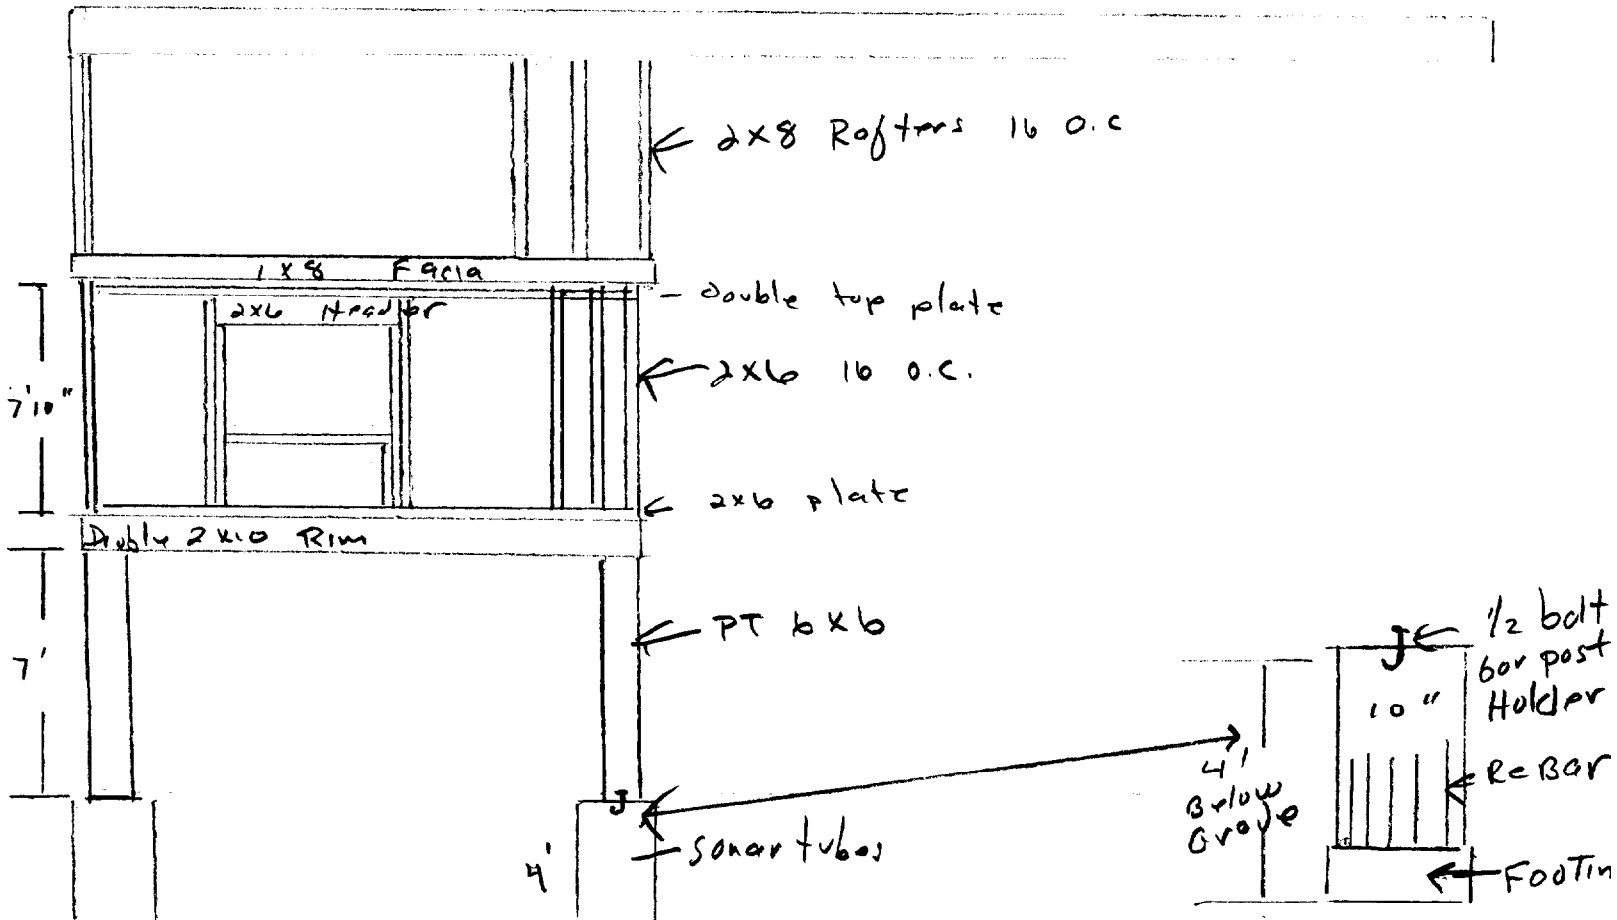 2x8 Rafters 16 O.C
1x8 Facia
Double top plate
2x6 Header
2x6 16 O.C.
7'10"
2x6 plate
Double 2x10 Rim
PT 6x6
7'
1/2 bolt
for post
Holder
10"
ReBar
4'
Below
Grade
sonar tubes
4'
FooTin